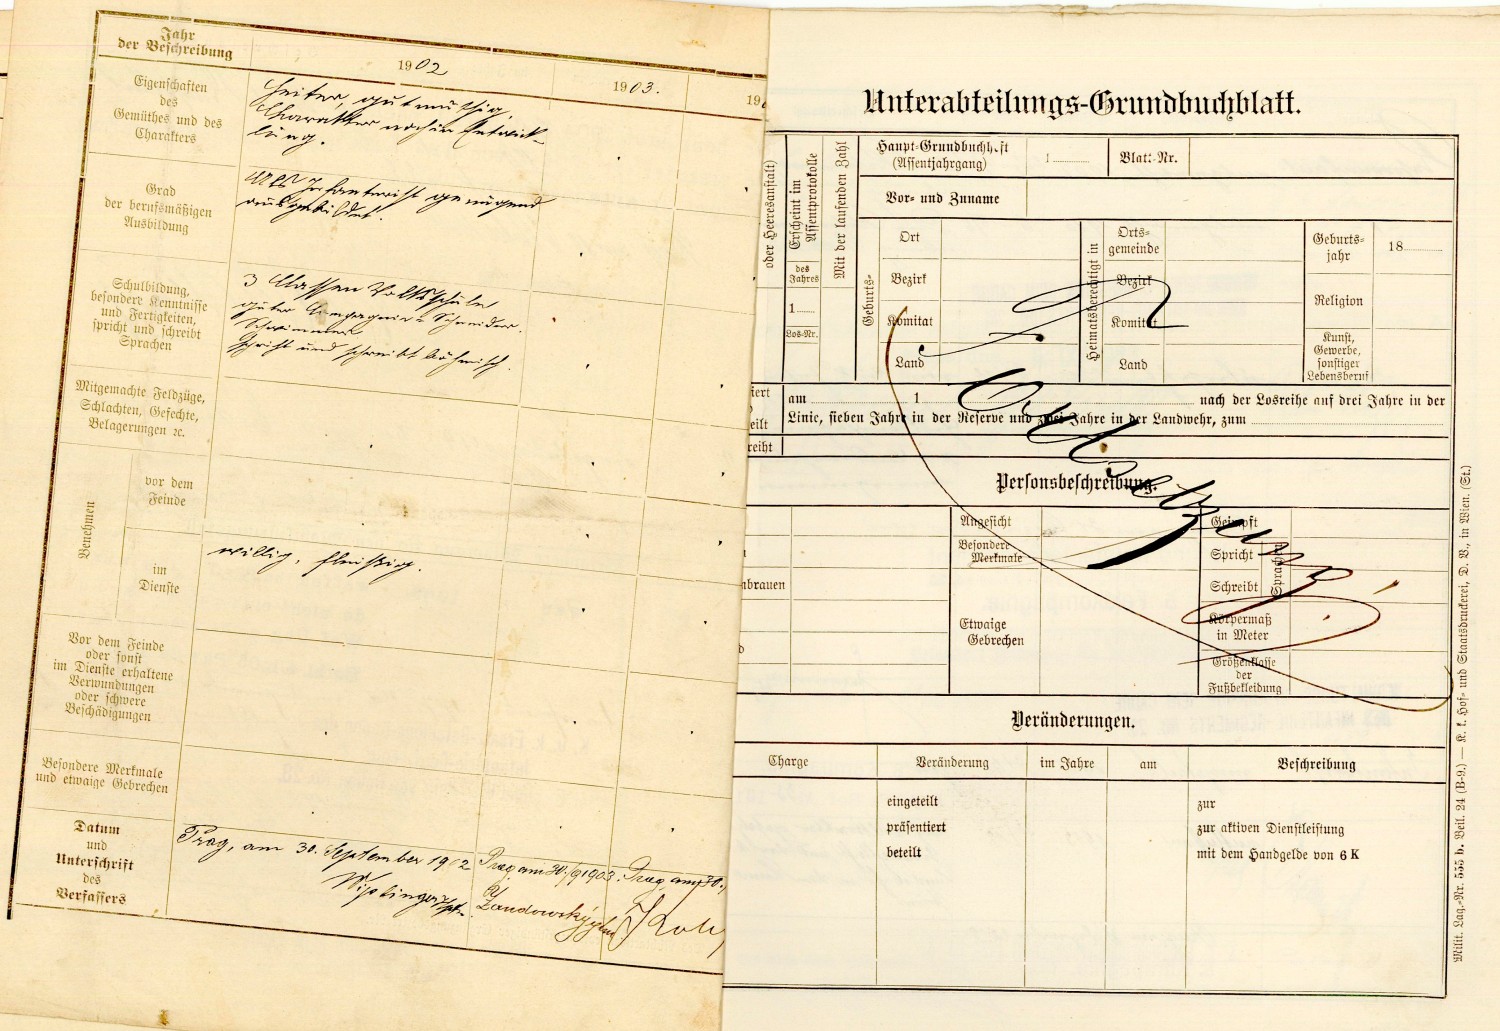 Jahr
der Beschreibung
1902
1903.
19
Eigenschaften
des
Gemüthes und des
Charakters
heiter, gutmüthig,
Charakter noch in Entwick-
lung.
Grad
der berufsmäßigen
Ausbildung
Als Infanterist genügend
ausgebildet.
Schulbildung,
besondere Kenntnisse
und Fertigkeiten,
spricht und schreibt
Sprachen
3 Classen Volksschule
guter Compagnie Schneider.
Schwimmer
spricht und schreibt böhmisch.
Mitgemachte Feldzüge,
Schlachten, Gefechte,
Belagerungen ꝛc.
Benehmen
vor dem
Feinde
im
Dienste
willig, fleißig.
Vor dem Feinde
oder sonst
im Dienste erhaltene
Verwundungen
oder schwere
Beschädigungen
Besondere Merkmale
und etwaige Gebrechen
Datum
und
Unterschrift
des
Verfassers
Prag, am 30. September 1902
Prag am 30/9 1903.
Prag, am 30.
Unterabteilungs-Grundbuchblatt.
oder Heeresanstalt)
Erscheint im
Assentprotokolle
des
Jahres
1
Los-Nr.
Mit der laufenden Zahl
Haupt-Grundbuchheft
(Assentjahrgang)
1
Blatt-Nr.
Vor- und Zuname
Geburts-
Ort
Bezirk
Komitat
Land
Heimatsberechtigt in
Orts-
gemeinde
Bezirk
Komitat
Land
Geburts-
jahr
18
Religion
Kunst,
Gewerbe,
sonstiger
Lebensberuf
am 1 nach der Losreihe auf drei Jahre in der
Linie, sieben Jahre in der Reserve und zwei Jahre in der Landwehr, zum
Personsbeschreibung.
nbrauen
Angesicht
Besondere
Merkmale
Etwaige
Gebrechen
Geimpft
Spricht
Schreibt
Sprachen
Körpermaß
in Meter
Größenklasse
der
Fußbekleidung
Veränderungen.
Charge
Veränderung
im Jahre
am
Beschreibung
eingeteilt
zur
präsentiert
zur aktiven Dienstleistung
beteilt
mit dem Handgelde von 6 K
Milit. Lag.-Nr. 555 b. Beil. 24 (B-9.) — K. k. Hof- und Staatsdruckerei, D. V., in Wien. (St.)